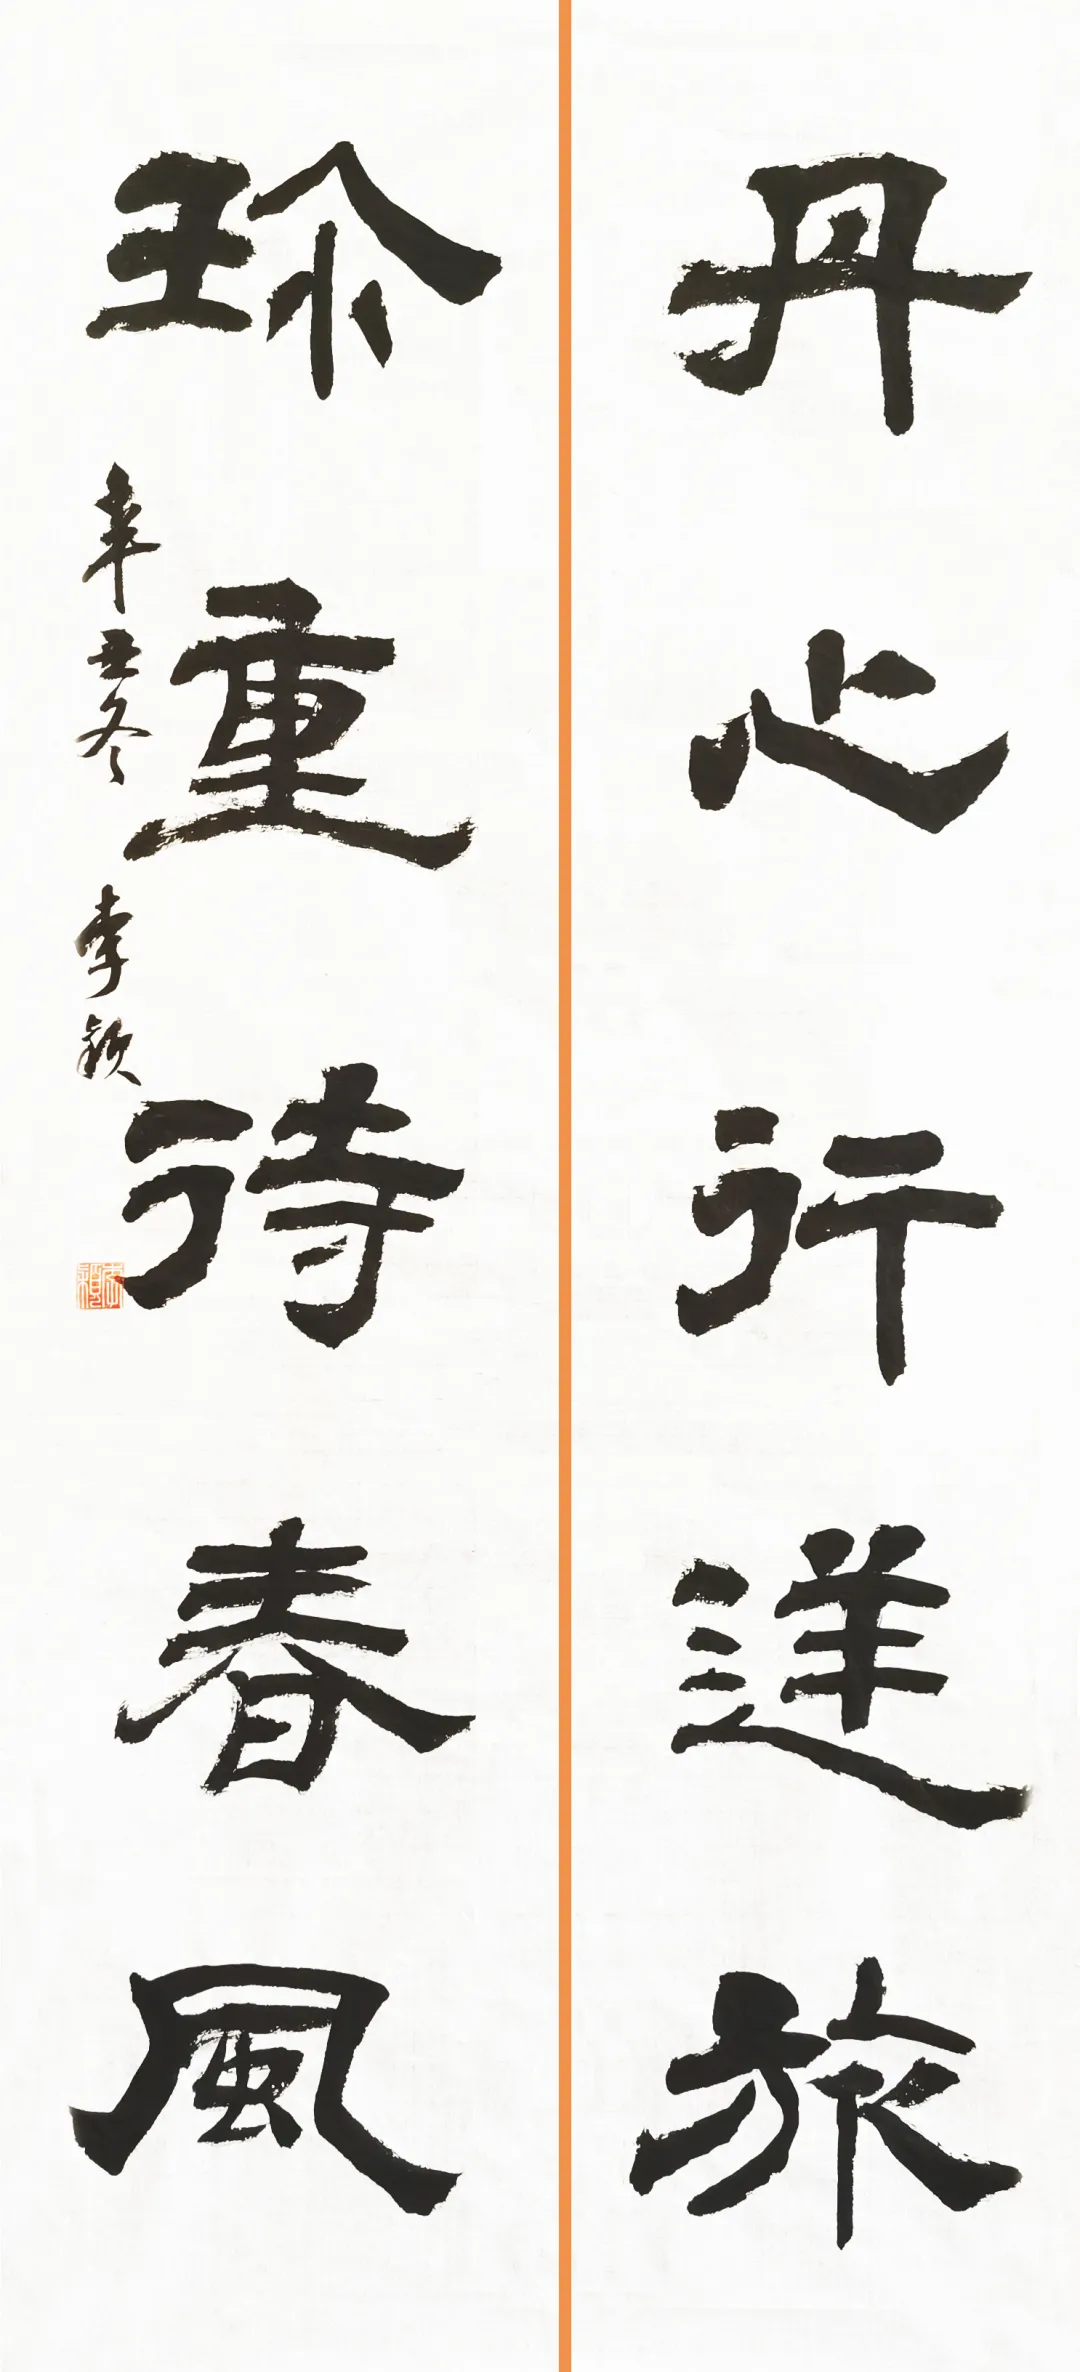 丹心行逆旅
珎重待春風
辛丑冬 李颖